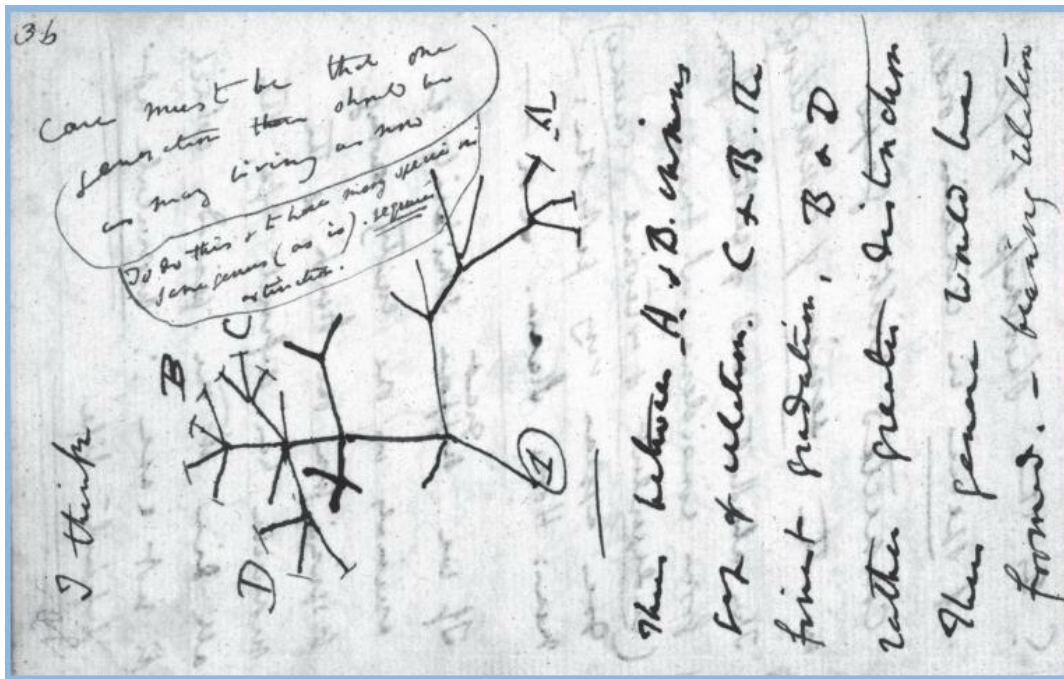 36
I think
Case must be that one
generation then should be
as many living as now
To do this & to have many species in
same genus (as is). requires
extinction.
A
B
C
D
1
Thus between A & B. immens
gap of relation. C & B. The
finest gradation, B & D
rather greater distinction
Thus genera would be
formed. — bearing relation